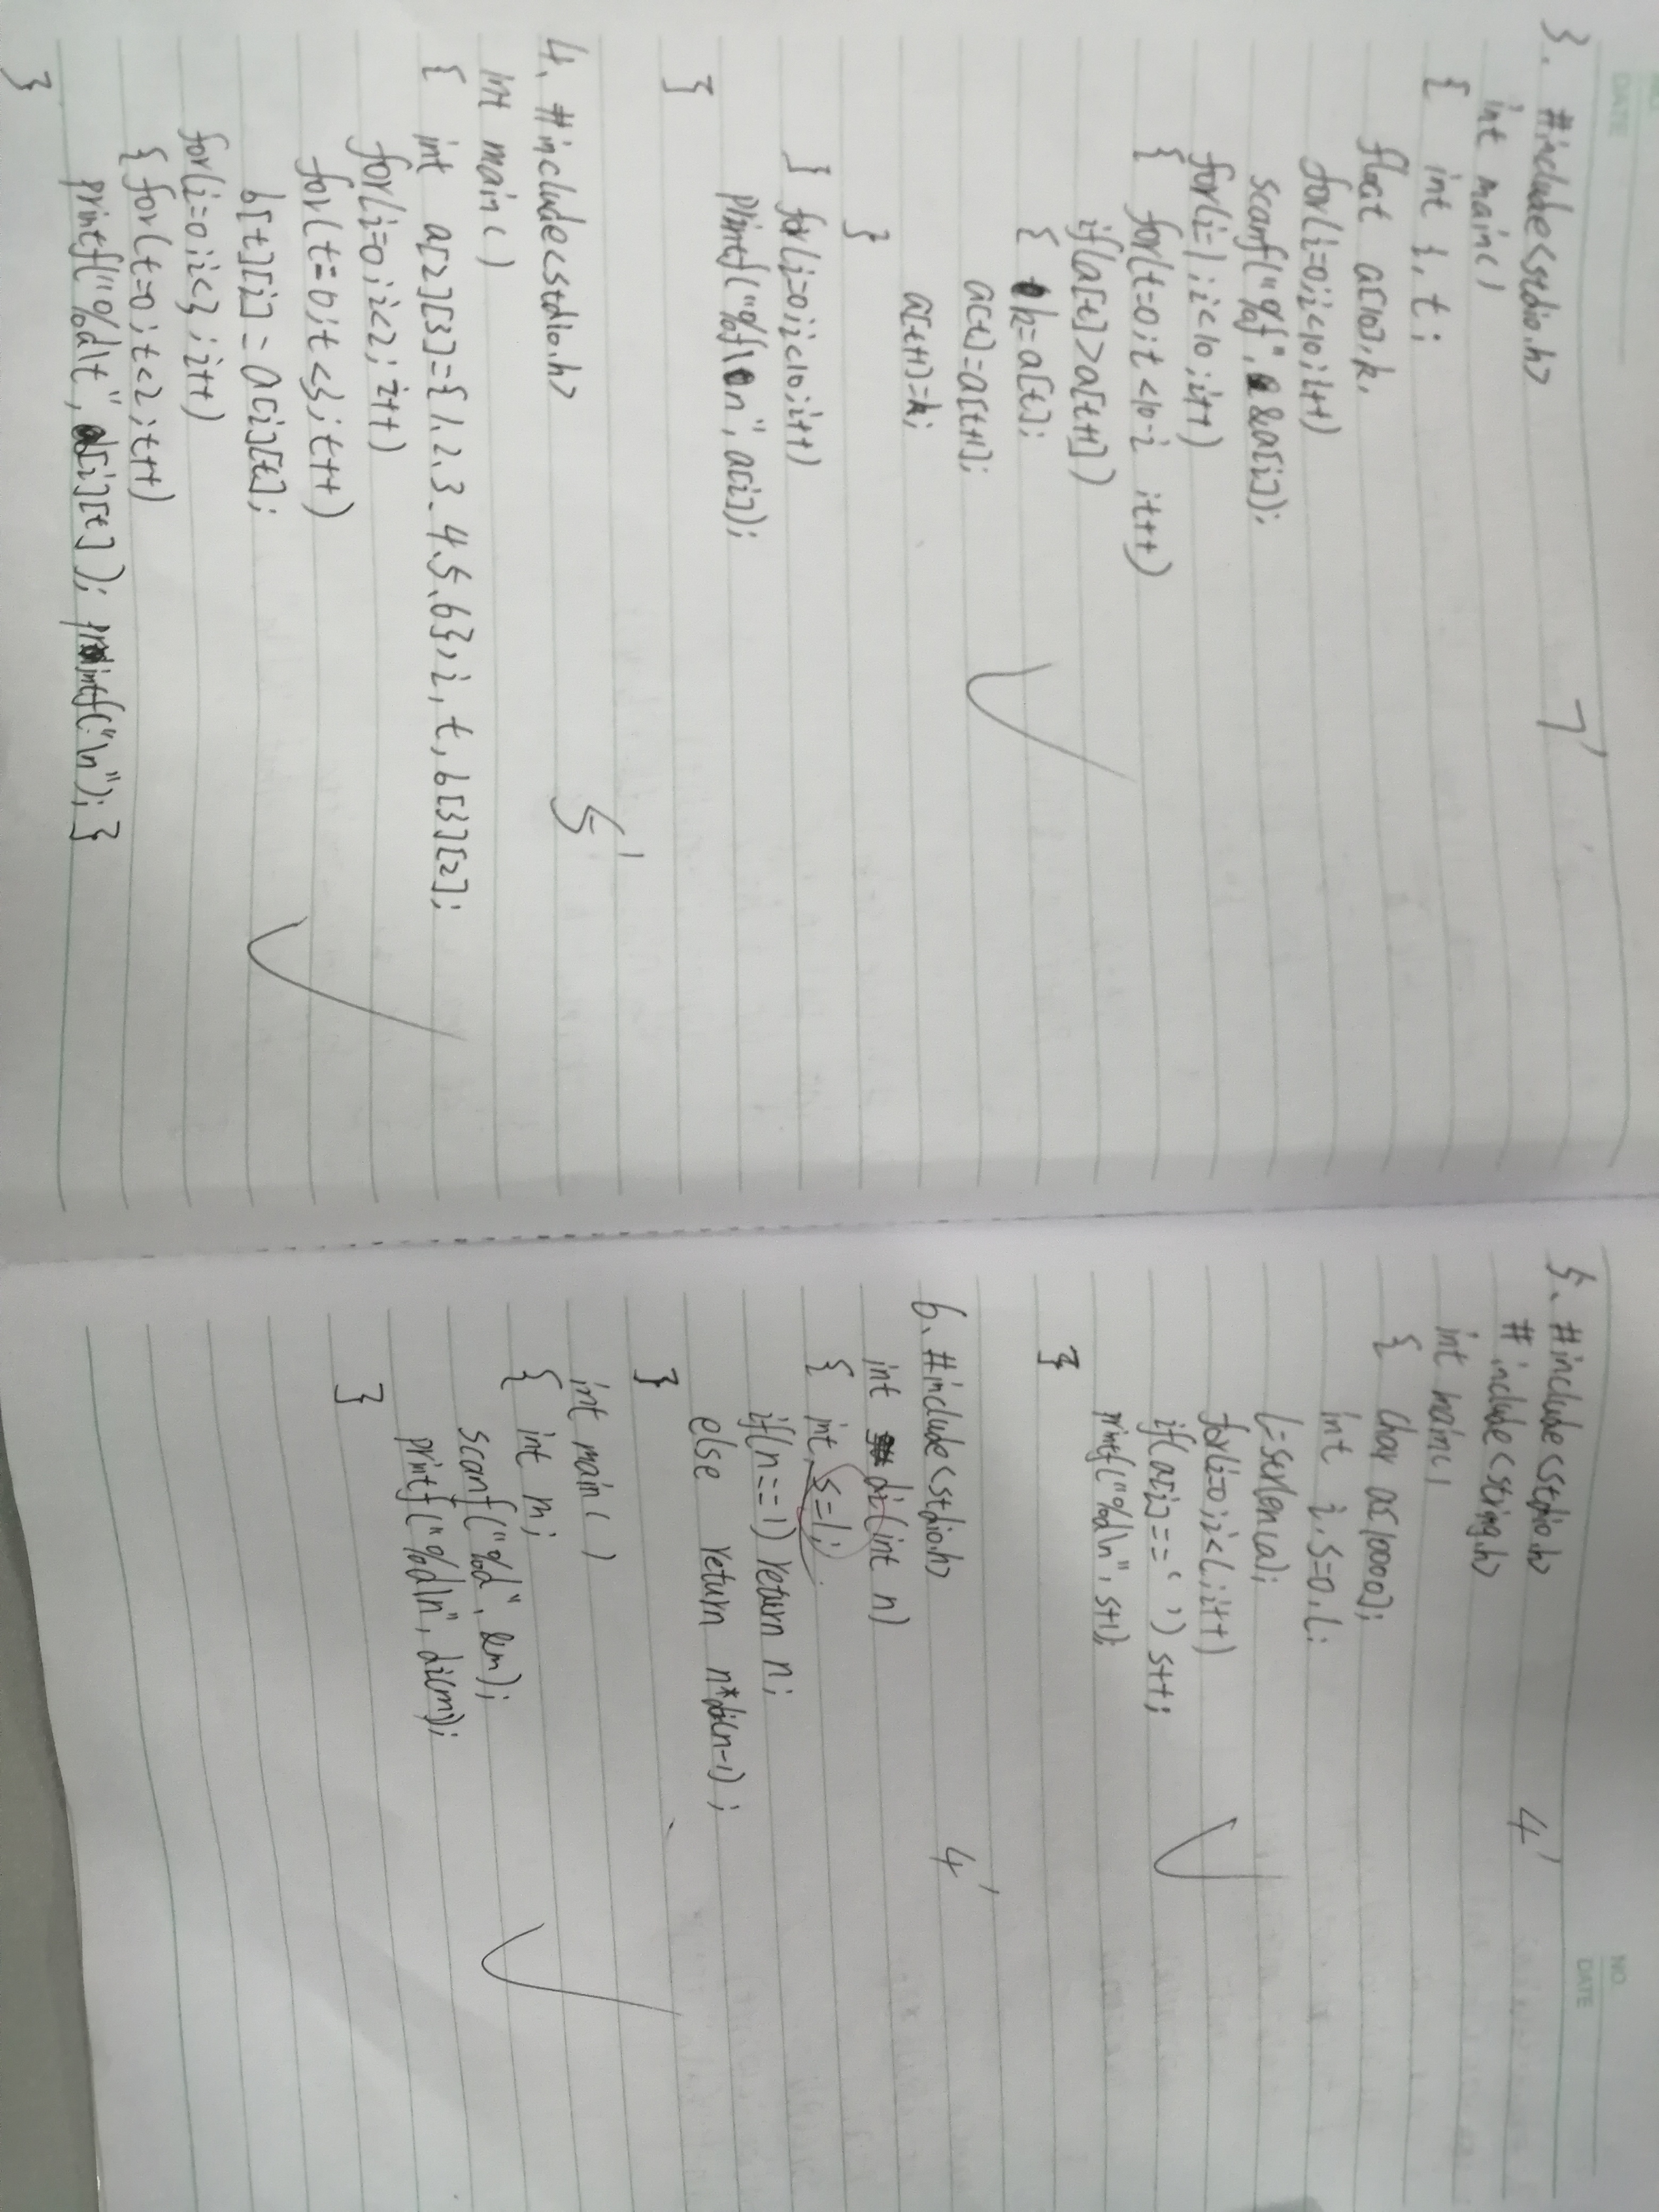 NO
DATE
3. #include<stdio.h> 7'
int main()
{ int i,t;
float a[10],k,
for(i=0;i<10;i++)
scanf("%f",&a[i]);
for(i=1;i<10;i++)
{ for(t=0;t<10-i;t++)
if(a[t]>a[t+1])
{ k=a[t];
a[t]=a[t+1];
a[t+1]=k;
}
} for(i=0;i<10;i++)
printf("%f\n",a[i]);
}
4. #include<stdio.h> 5'
int main()
{ int a[2][3]={1.2.3.4.5.6},i,t,b[3][2];
for(i=0;i<2;i++)
for(t=0;t<3;t++)
b[t][i]=a[i][t];
for(i=0;i<3;i++)
{ for(t=0;t<2;t++)
printf("%d\t", [i][t]); printf("\n");}
}
NO.
DATE
5. #include<stdio.h> 4'
#include<string.h>
int main()
{ char a[10000];
int i,s=0,l;
l=strlen(a);
for(i=0;i<l;i++)
if(a[i]==' ') s++;
printf("%d\n",s+1);
}
6. #include<stdio.h> 4'
int di(int n)
{ int s=1;
if(n==1) return n;
else return n*di(n-1);
}
int main()
{ int m;
scanf("%d",&m);
printf("%d\n",di(m));
}